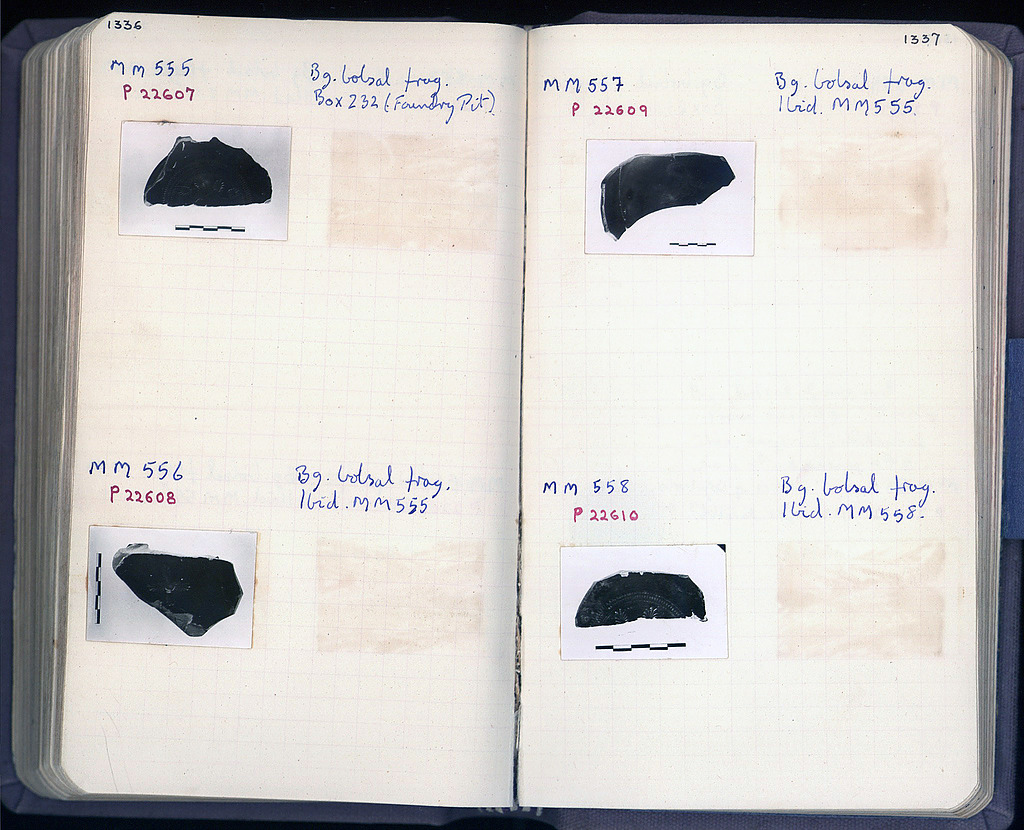 1336
MM 555
P 22607
Bg. bolsal frag.
Box 232 (Foundry Pit).
MM 556
P 22608
Bg. bolsal frag.
Ibid. MM 555
1337
MM 557
P 22609
Bg. bolsal frag.
Ibid. MM 555.
MM 558
P 22610
Bg. bolsal frag.
Ibid. MM 558.